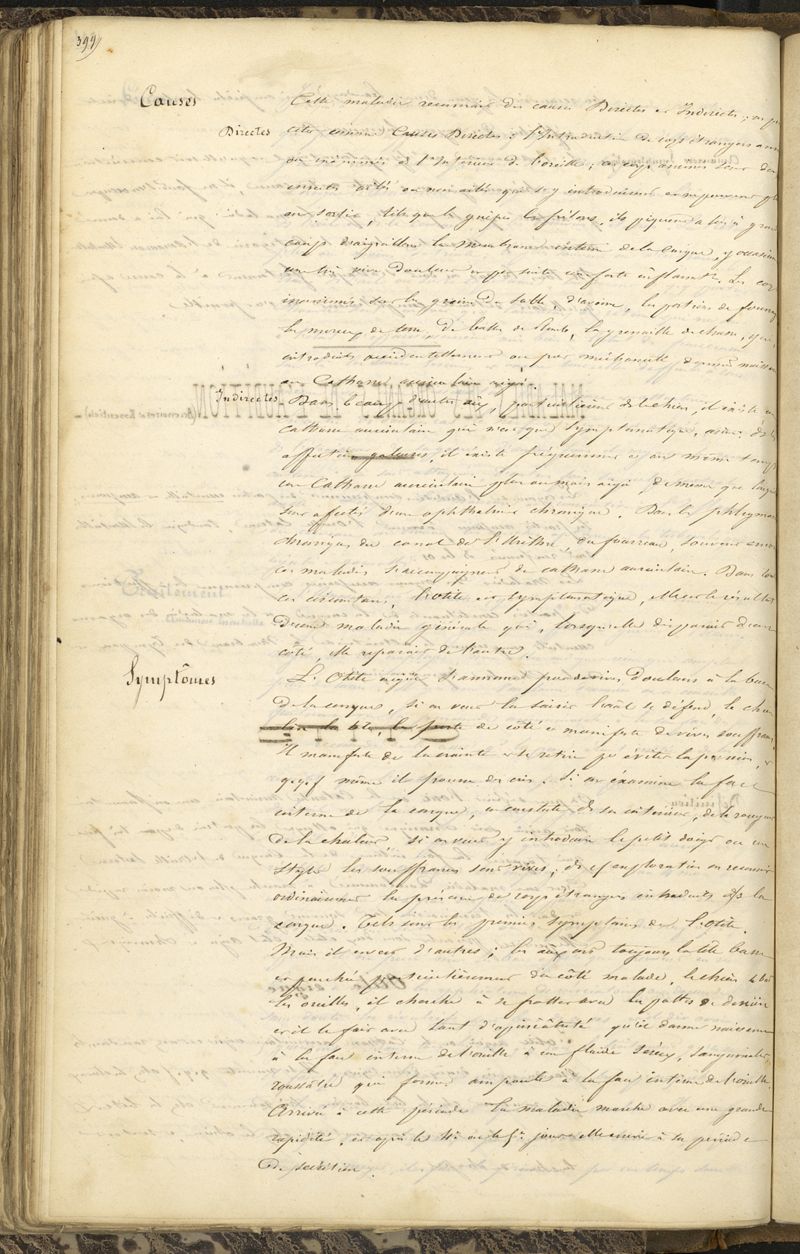 399
Causes
Cette maladie reconnait des causes Directes et Indirectes ; on
Directes
citer comme Causes Directes : l'Introduction de corps étrangers
ou inanimés à l'Intérieur de l'oreille ; les corps animés sont des
insectes ailés ou non ailés qui s'y introduisent et ne peuvent
en sortir, tels que les guêpes les frelons, ils piquent à
coups d'aiguillon la Membrane interne de la conque, y
une très vive Douleur et par suite une forte inflamt. Les
inanimés sont les grains de sable, d'avoine, les portions de
les morceaux de bois, de balle de plomb, la grenaille de chasse, qui,
introduits accidentellement ou par méchanceté donnent
au Catharre auriculaire aigu.
Indirectes
Dans beaucoup d'autres cas, particulièrement sur le chien, il existe un
catharre auriculaire qui n'est que symptomatique, ainsi, dans les
affections galeuses, il existe fréquemment et en même temps
un Catharre auriculaire plus ou moins aigu, de même que
sont affectés d'une ophthalmie chronique. Dans les
chroniques du canal de l'Urèthre, du fourreau, souvent
ces maladies s'accompagnent de catharre auriculaire. Dans
ces circonstances, l'otite est symptomatique, elle est le résultat
d'une maladie générale qui, lorsqu'elle disparait d'un
coté, elle reparait de l'autre.
Symptômes
L'Otite aigüe s'annonce par de vives Douleurs à la base
de la conque, si on veut la saisir l'anl se défend, le
la tête, la porte de côté et manifeste de vives
Il manifeste de la crainte et se retire pr éviter la pression, et
q.q.f même il pousse des cris. Si on éxamine la face
interne de la conque, on constate ds son intérieur, de la rougeur
de la chaleur, si on veut y introduire le petit doigt ou un
stylet les souffrances sont vives ; ds cet exploration on reconnait
ordinairement la présence de corps étrangers introduits ds la
conque. Tels sont les premiers symptômes de l'otite.
Mais il en est d'autres ; les anx ont toujours la tête basse
et penchée particulièrement du côté malade, le chien
les oreilles, il cherche à se frotter avec les pattes de derrière
et il le fait avec tant d'opiniâtreté qu'il donne naissance
à la face interne de l'oreille à un fluide séreux, sanguinolent
roussâtre qui forme ampoule à la face interne de l'oreille.
Arrivée à cette période la maladie marche avec une grande
rapidité, et après le 4e ou le 5e jour elle arrive à sa période
de sécrétion.